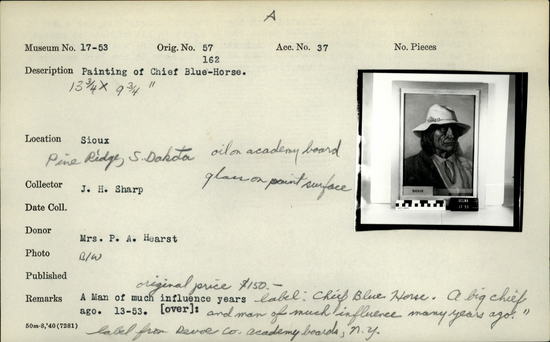 A
Museum No. 17-53 Orig. No. 57 Acc. No. 37 No. Pieces
162
Description Painting of Chief Blue-Horse.
13 3/4 X 9 3/4 "
Location Sioux
Pine Ridge, S. Dakota oil on academy board
Collector J. H. Sharp glass on paint surface
Date Coll.
Donor
Mrs. P. A. Hearst
Photo B/W
Published original price $150.-
Remarks A Man of much influence years label: Chief Blue Horse. A big chief
ago. 13-53. [over]: and man of much influence many years ago."
50m-8,'40(7281) label from Devoe Co. academy boards, N.Y.